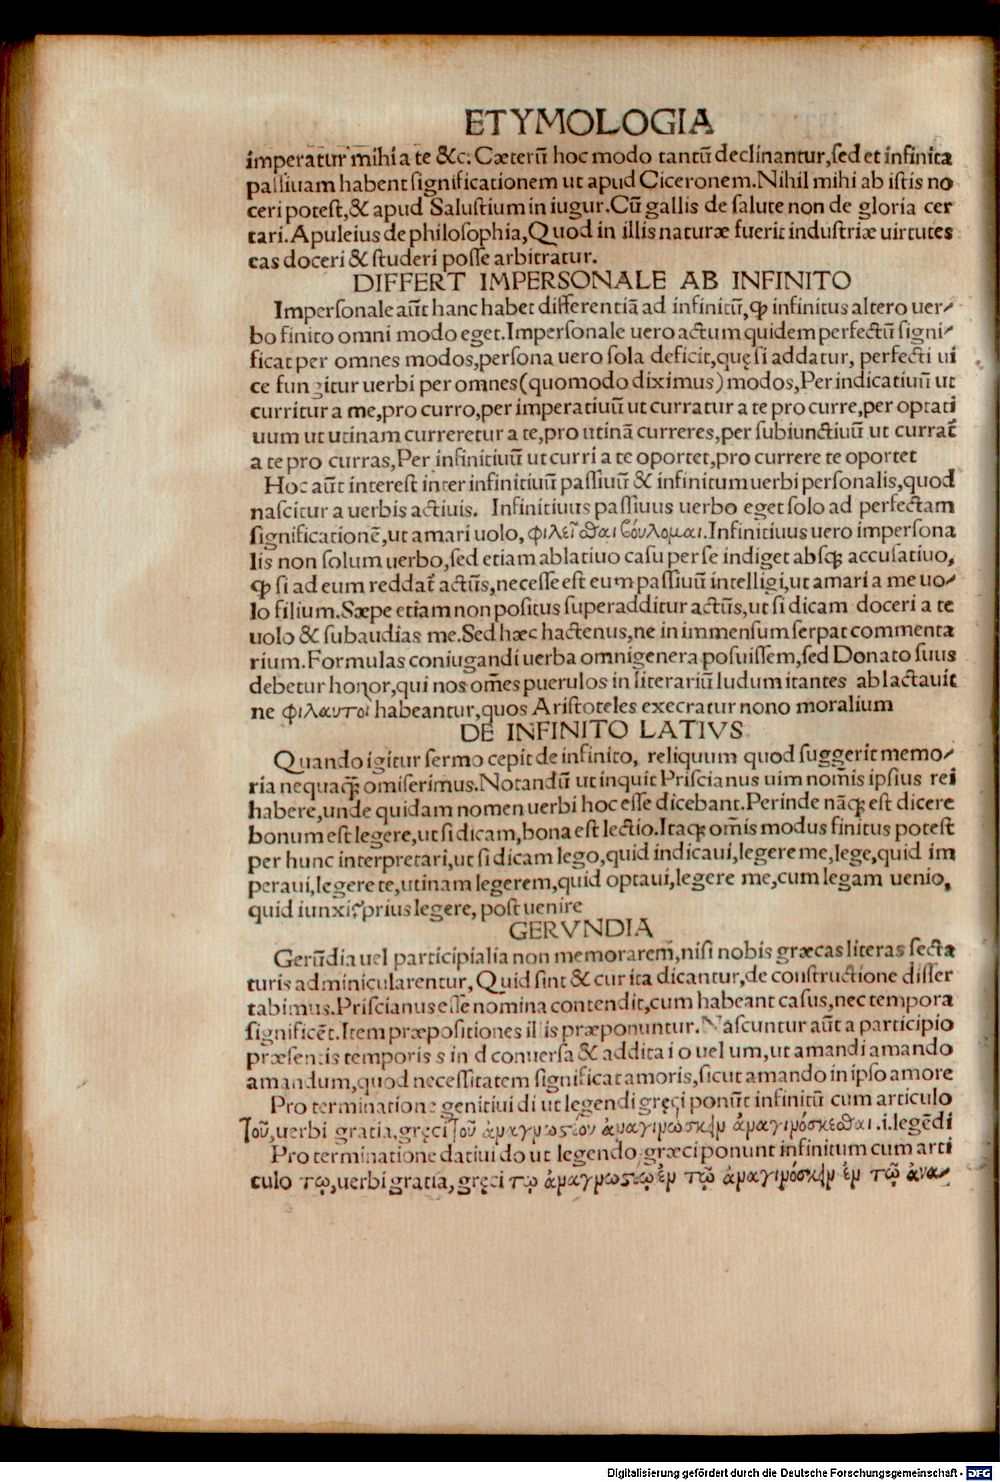 ETYMOLOGIA
imperatur mihi a te &c. Cæterū hoc modo tantū declinantur,ſed et infinita
paſſiuam habent ſignificationem ut apud Ciceronem.Nihil mihi ab iſtis no
ceri poteſt,& apud Saluſtium in iugur.Cū gallis de ſalute non de gloria cer
tari.Apuleius de philoſophia,Quod in illis naturæ fuerit induſtriæ uirtutes
eas doceri & ſtuderi poſſe arbitratur.
DIFFERT IMPERSONALE AB INFINITO
Imperſonale aūt hanc habet differentiā ad infinitū,ꝙ infinitus altero uer⸗
bo finito omni modo eget.Imperſonale uero actum quidem perfectū ſigni⸗
ficat per omnes modos,perſona uero ſola deficit,quę ſi addatur, perfecti ui
ce fungitur uerbi per omnes(quomodo diximus)modos,Per indicatiuū ut
curritur a me,pro curro,per imperatiuū ut curratur a te pro curre,per optati
uum ut utinam curreretur a te,pro utinā curreres,per ſubiunctiuū ut currat᷑
a te pro curras,Per infinitiuū ut curri a te oportet,pro currere te oportet
Hoc aūt intereſt inter infinitiuū paſſiuū & infinitum uerbi perſonalis,quod
naſcitur a uerbis actiuis. Infinitiuus paſſiuus uerbo eget ſolo ad perfectam
ſignificationē,ut amari uolo, φιλεῖσθαι βούλομαι.Infinitiuus uero imperſona
lis non ſolum uerbo,ſed etiam ablatiuo caſu per ſe indiget abſqꝫ accuſatiuo,
ꝙ ſi ad eum reddat᷑ actūs,neceſſe eſt eum paſſiuū intelligi,ut amari a me uo⸗
lo filium.Sæpe etiam non poſitus ſuperadditur actūs,ut ſi dicam doceri a te
uolo & ſubaudias me.Sed hæc hactenus,ne in immenſum ſerpat commenta
rium.Formulas coniugandi uerba omnigenera poſuiſſem,ſed Donato ſuus
debetur honor,qui nos om̄es puerulos in literariū ludum itantes ablactauit
ne φιλαυτοὶ habeantur,quos Ariſtoteles execratur nono moralium
DE INFINITO LATIVS
Quando igitur ſermo cepit de infinito, reliquum quod ſuggerit memo⸗
ria nequaqꝫ̄ omiſerimus.Notandū ut inquit Priſcianus uim nom̄is ipſius rei
habere,unde quidam nomen uerbi hoc eſſe dicebant.Perinde nāqꝫ eſt dicere
bonum eſt legere,ut ſi dicam,bona eſt lectio.Itaqꝫ om̄is modus finitus poteſt
per hunc interpretari,ut ſi dicam lego,quid indicaui,legere me,lege,quid im
peraui,legere te,utinam legerem,quid optaui,legere me,cum legam uenio,
quid iunxi?prius legere, poſt uenire
GERVNDIA
Gerūdia uel participialia non memorarem̄,niſi nobis græcas literas ſecta
turis adminicularentur, Quid ſint & cur ita dicantur,de conſtructione diſſer
tabimus.Priſcianus eſſe nomina contendit,cum habeant caſus,nec tempora
ſignificēt.Item præpoſitiones illis præponuntur.Naſcuntur aūt a participio
præſentis temporis s in d conuerſa & addita i o uel um,ut amandi amando
amandum,quod neceſſitatem ſignificat amoris,ſicut amando in ipſo amore
Pro terminatione genitiui di ut legendi gręci ponūt infinitū cum articulo
τοῦ,uerbi gratia,gręci τοῦ ἀναγνωστέου ἀναγινώσκειν ἀναγινόσκεσθαι .i.legēdi
Pro terminatione datiui do ut legendo, græci ponunt infinitum cum arti
culo τῳ,uerbi gratia, gręci τῳ ἀναγνωστέῳ ἐν τῷ ἀναγινόσκειν ἐν τῷ ἀνα⸗
Digitalisierung gefördert durch die Deutsche Forschungsgemeinschaft - DFG